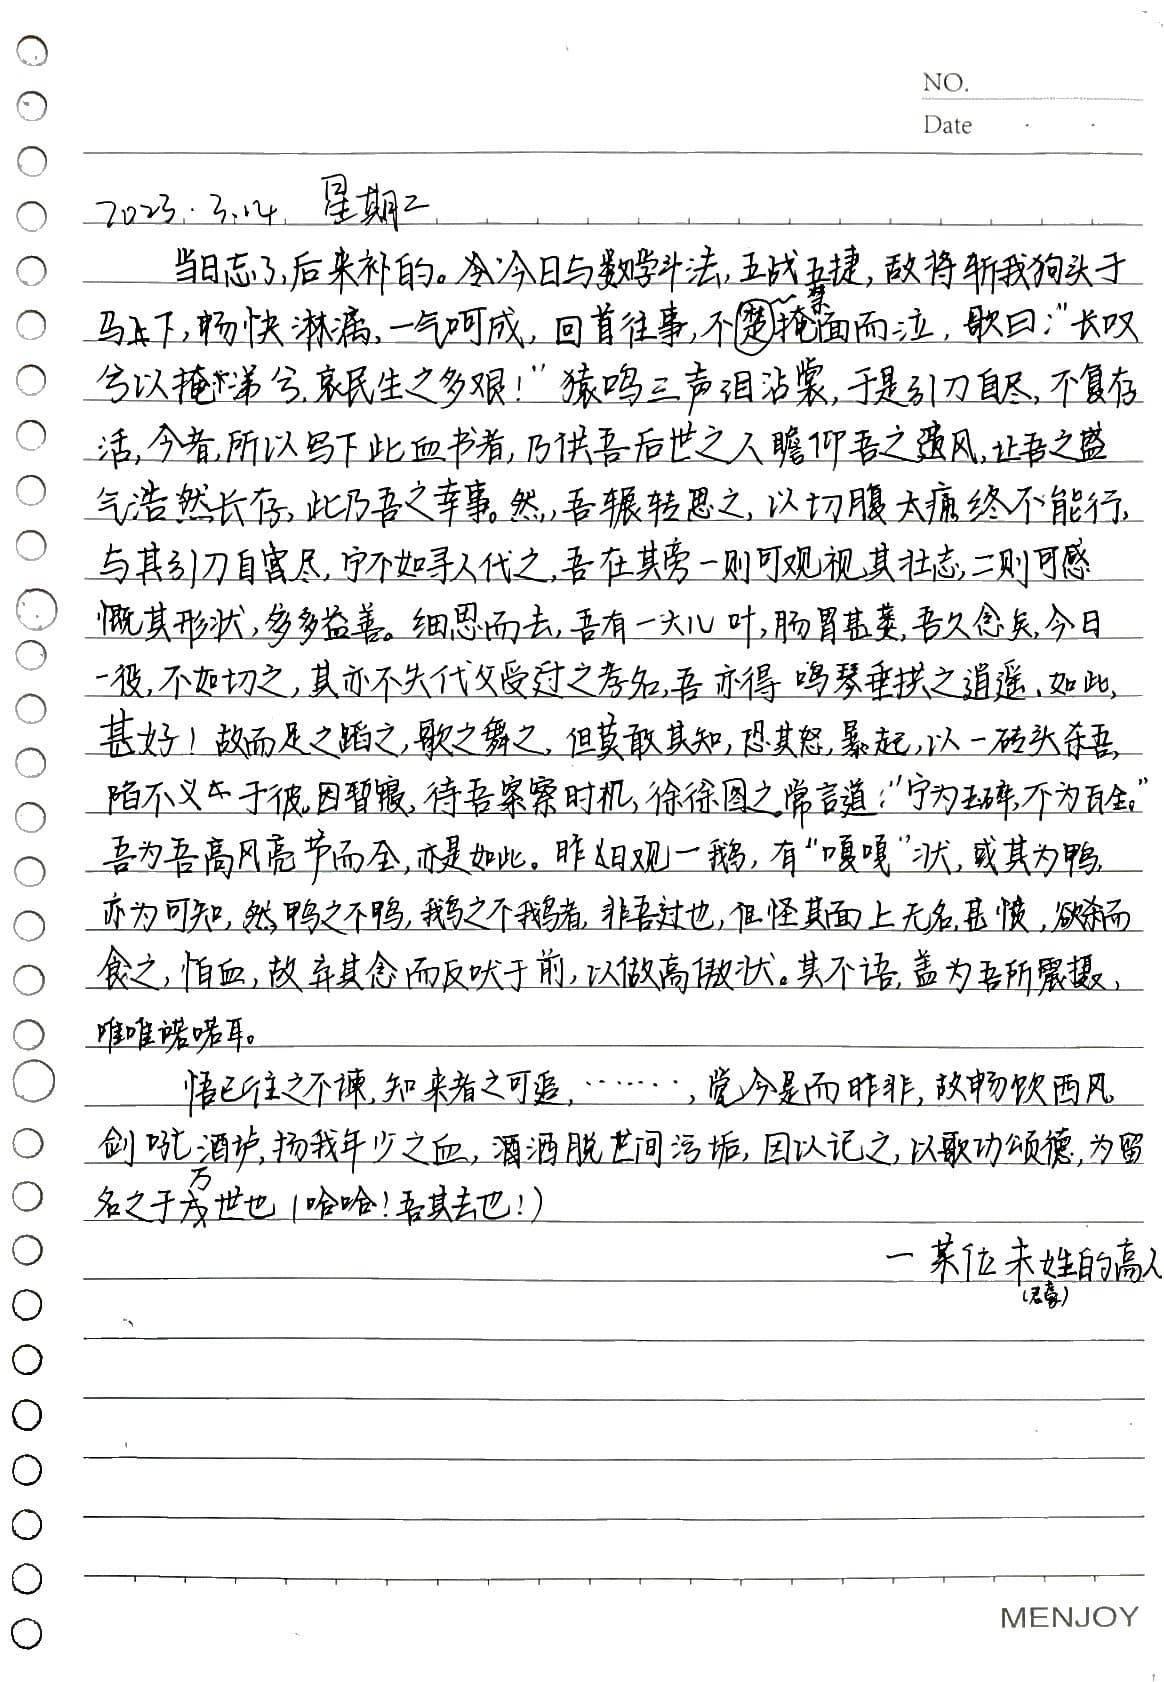 NO.
Date
2023.3.14 星期二
当日忘了,后来补的。今日与数学斗法,五战五捷,敌将斩我狗头于
马下,畅快淋漓,一气呵成,回首往事,不禁掩面而泣,歌曰:“长叹
兮以掩涕兮,哀民生之多艰!”猿鸣三声泪沾裳,于是引刀自尽,不复存
活,今者,所以写下此血书者,乃供吾后世之人瞻仰吾之强风,让吾之盛
气浩然长存,此乃吾之幸事。然,吾辗转思之,以切腹太痛终不能行,
与其引刀自尽,宁不如寻人代之,吾在其旁一则可观视其壮志,二则可感
慨其形状,多多益善。细思而去,吾有一大儿叶,肠胃甚萎,吾久念矣,今日
一役,不如切之,其亦不失代父受过之孝名,吾亦得鸣琴垂拱之逍遥、如此,
甚好!故而足之蹈之,歌之舞之,但莫敢其知,恐其怒,暴起,以一砖头杀吾,
陷不义于彼,因暂寝,待吾察时机,徐徐图之。常言道:“宁为玉碎,不为瓦全。”
吾为吾高风亮节而全,亦是如此。昨日观一鹅,有“嘎嘎”状,或其为鸭,
亦为可知,然,鸭之不鸭,鹅之不鹅者,非吾过也,但怪其面上无名,甚愤,欲杀而
食之,怕血,故弃其念而反吠于前,以做高傲状。其不语,盖为吾所震摄,
唯唯诺诺耳。
悟已往之不谏,知来者之可追,……,觉今是而昨非,故畅饮西风
剑吼酒垆,扬我年少之血,洒脱世间污垢,因以记之,以歌功颂德,为留
名之于万世也(哈哈!吾其去也!)
一某位未姓的高人
MENJOY